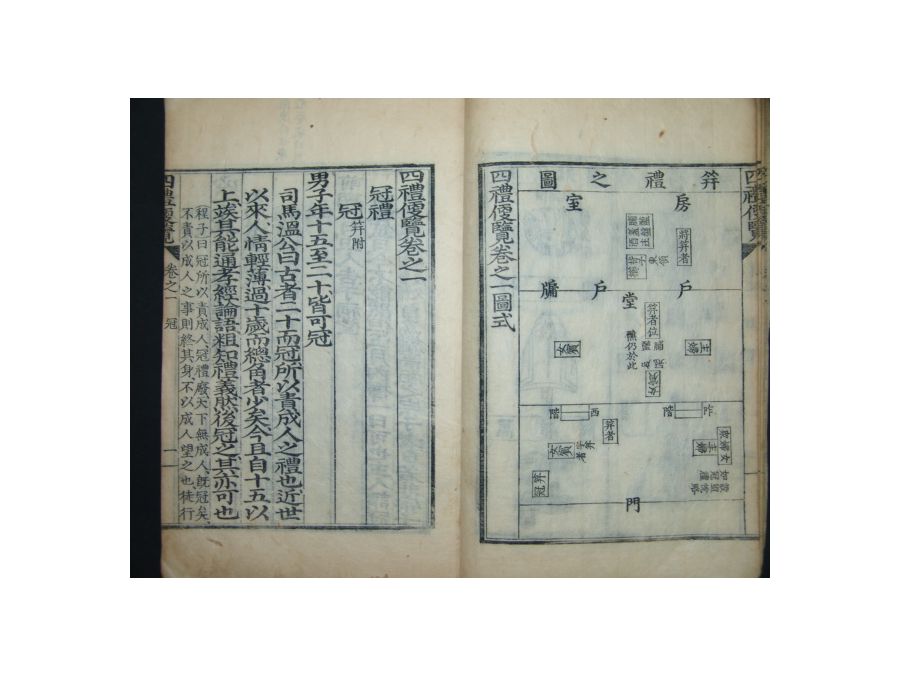 四禮便覽
笄禮之圖
房
室
將笄者
戶
戶
牖
堂
笄者位
醮仍於此
女賓
主婦
女賓
西階
阼階
笄者
字笄者
女賓
主婦
笄冠
門
四禮便覽卷之一圖式
四禮便覽卷之一
冠禮
冠笄附
男子年十五至二十皆可冠
司馬溫公曰古者二十而冠所以責成人之禮也近世
以來人情輕薄過十歲而總角者少矣今且自十五以
上俟其能通孝經論語粗知禮義然後冠之其亦可也
程子曰冠所以責成人冠禮廢天下無成人旣冠矣
不責以成人之事則終其身不以成人望之也徒行
四禮便覽 卷之一 冠 一